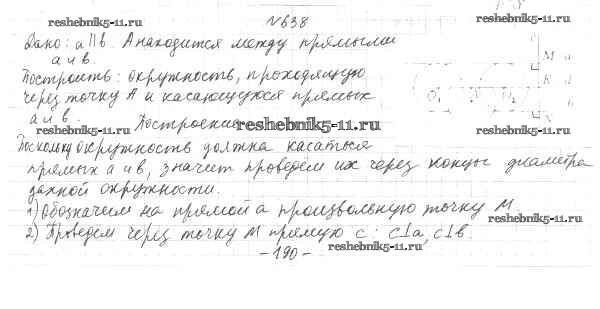 №638
reshebnik5-11.ru
reshebnik5-11.ru
Дано: a||b. А находится между прямыми
a и b.
reshebnik5-11.ru
Построить: окружность, проходящую
через точку А и касающуюся прямых
a и b.
M a
K d
O₁ O₂ b
N
c
reshebnik5-11.ru
Построение
reshebnik5-11.ru
reshebnik5-11.ru
Поскольку окружность должна касаться
прямых a и b, значит проведём их через концы диаметра
данной окружности.
1) Обозначем на прямой a произвольную точку M
reshebnik5-11.ru
2) Проведем через точку M прямую c: c⊥a, c⊥b.
reshebnik5-11.ru
– 190 –